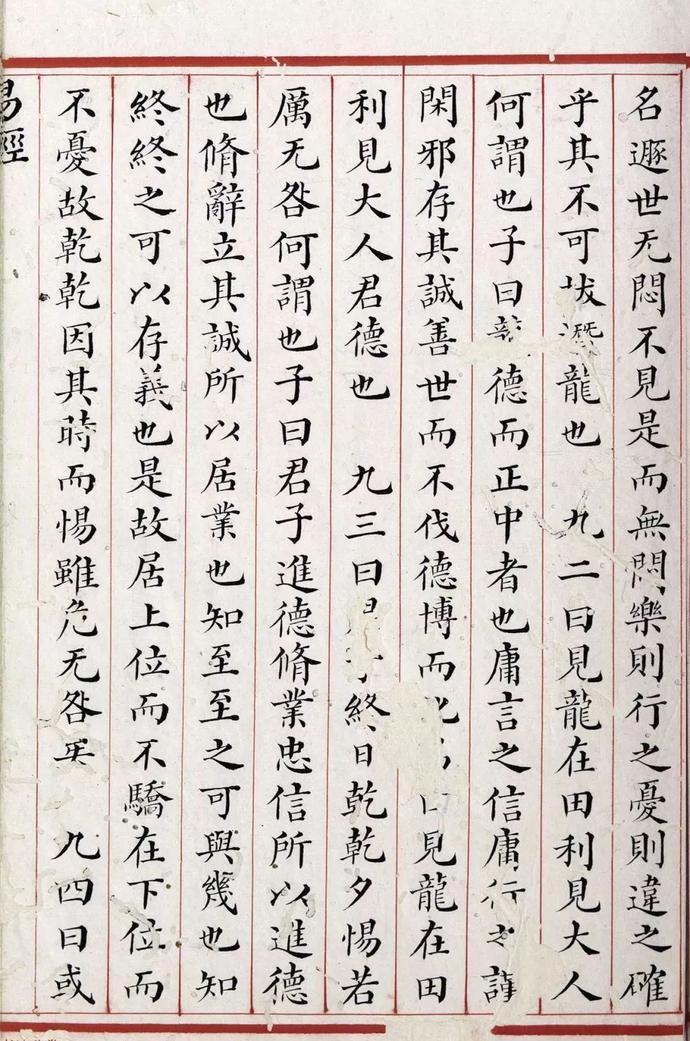 名遯世无悶不見是而無悶樂則行之憂則違之確
乎其不可拔潛龍也　九二曰見龍在田利見大人
何謂也子曰龍德而正中者也庸言之信庸行之謹
閑邪存其誠善世而不伐德博而見龍在田
利見大人君德也　九三曰終日乾乾夕惕若
厲无咎何謂也子曰君子進德脩業忠信所以進德
也脩辭立其誠所以居業也知至至之可與幾也知
終終之可以存義也是故居上位而不驕在下位而
不憂故乾乾因其時而惕雖危无咎矣　九四曰或
易經